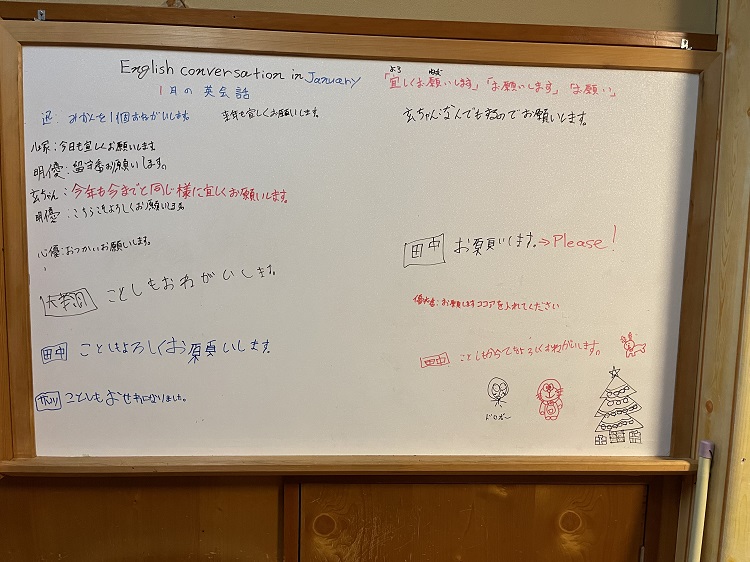 English conversation in January
1月の英会話
「宜しくお願いします」「お願いします」「お願い」
よろ ねが
迅：みかんを1個おねがいします。
来年も宜しくお願いします。
玄ちゃん：なんでもやるのでお願いします。
心家：今日も宜しくお願いします。
明優：留守番お願いします。
玄ちゃん：今年も今までと同じ様に宜しくお願いします。
明優：こちらこそよろしくお願いします
心優：おつかいお願いします。
田中 お願いします。→Please!
ことしもおねがいします。
お願いしますココアを入れてください
田中 ことしもよろしくお願いします。
田中 ことしもからてをよろしくおねがいします。
ことしもおせわになりました。